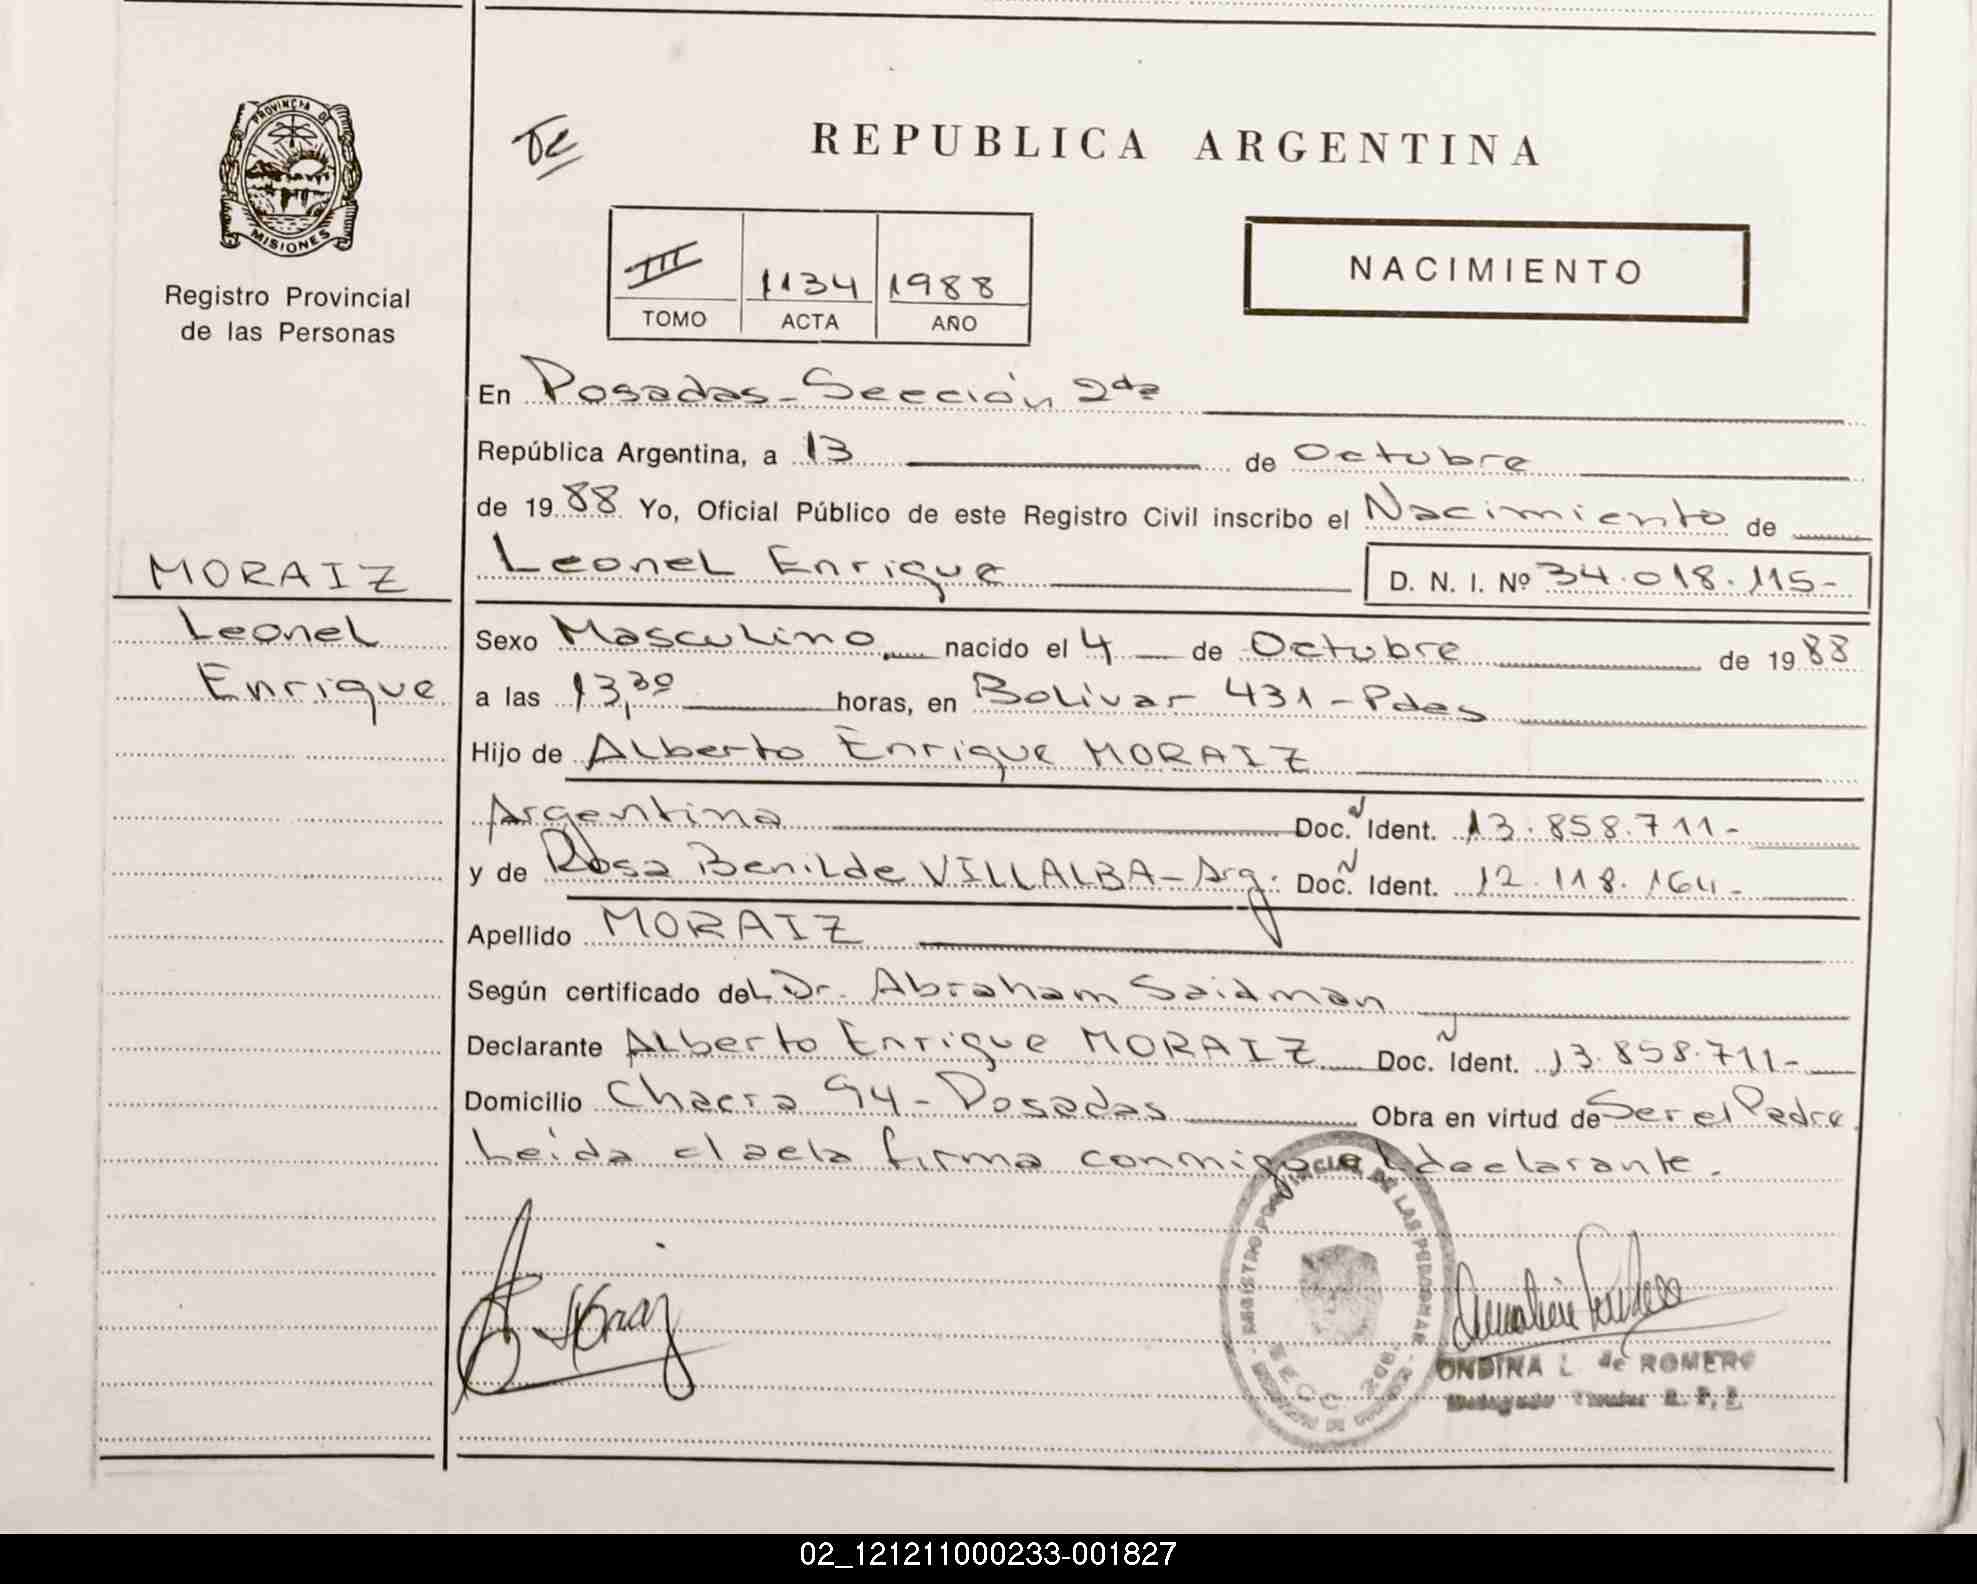 PROVINCIA DE
MISIONES
Registro Provincial
de las Personas
REPUBLICA ARGENTINA
III 1134 1988
TOMO ACTA AÑO
NACIMIENTO
En Posadas - Sección 2da
República Argentina, a 13 de Octubre
de 1988 Yo, Oficial Público de este Registro Civil inscribo el Nacimiento de
MORAIZ
Leonel
Enrique
Leonel Enrique D. N. I. Nº 34.018.115-
Sexo Masculino nacido el 4 de Octubre de 1988
a las 13,30 horas, en Bolívar 431 - Pdas
Hijo de Alberto Enrique MORAIZ
Argentina Doc. Ident. 13.858.711-
y de Rosa Benilde VILLALBA - Arg. Doc. Ident. 12.118.164-
Apellido MORAIZ
Según certificado del Dr. Abraham Saidman
Declarante Alberto Enrique MORAIZ Doc. Ident. 13.858.711-
Domicilio Chacra 94 - Posadas Obra en virtud de Ser el Padre
Leida el acta firma conmigo el declarante.
REGISTRO PROVINCIAL DE LAS PERSONAS
SECC. 2da
ONDINA L. de ROMERO
Titular R. P. P.
02_121211000233-001827